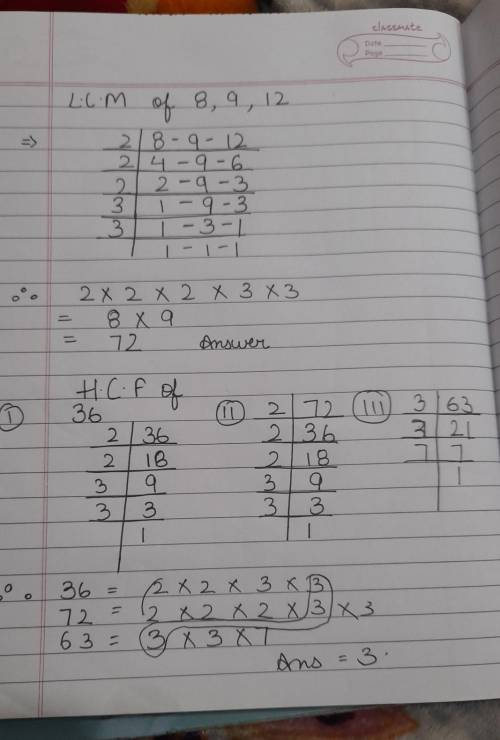 classmate
Date
Page
L.C.M of 8, 9, 12
⇒ 2 | 8 - 9 - 12
2 | 4 - 9 - 6
2 | 2 - 9 - 3
3 | 1 - 9 - 3
3 | 1 - 3 - 1
1 - 1 - 1
∴ 2 × 2 × 2 × 3 × 3
= 8 × 9
= 72 Answer
H.C.F of
I 36
2 | 36
2 | 18
3 | 9
3 | 3
1
II 2 | 72
2 | 36
2 | 18
3 | 9
3 | 3
1
III 3 | 63
3 | 21
7 | 7
1
∴ 36 = 2 × 2 × 3 × 3
72 = 2 × 2 × 2 × 3 × 3
63 = 3 × 3 × 7
Ans = 3.